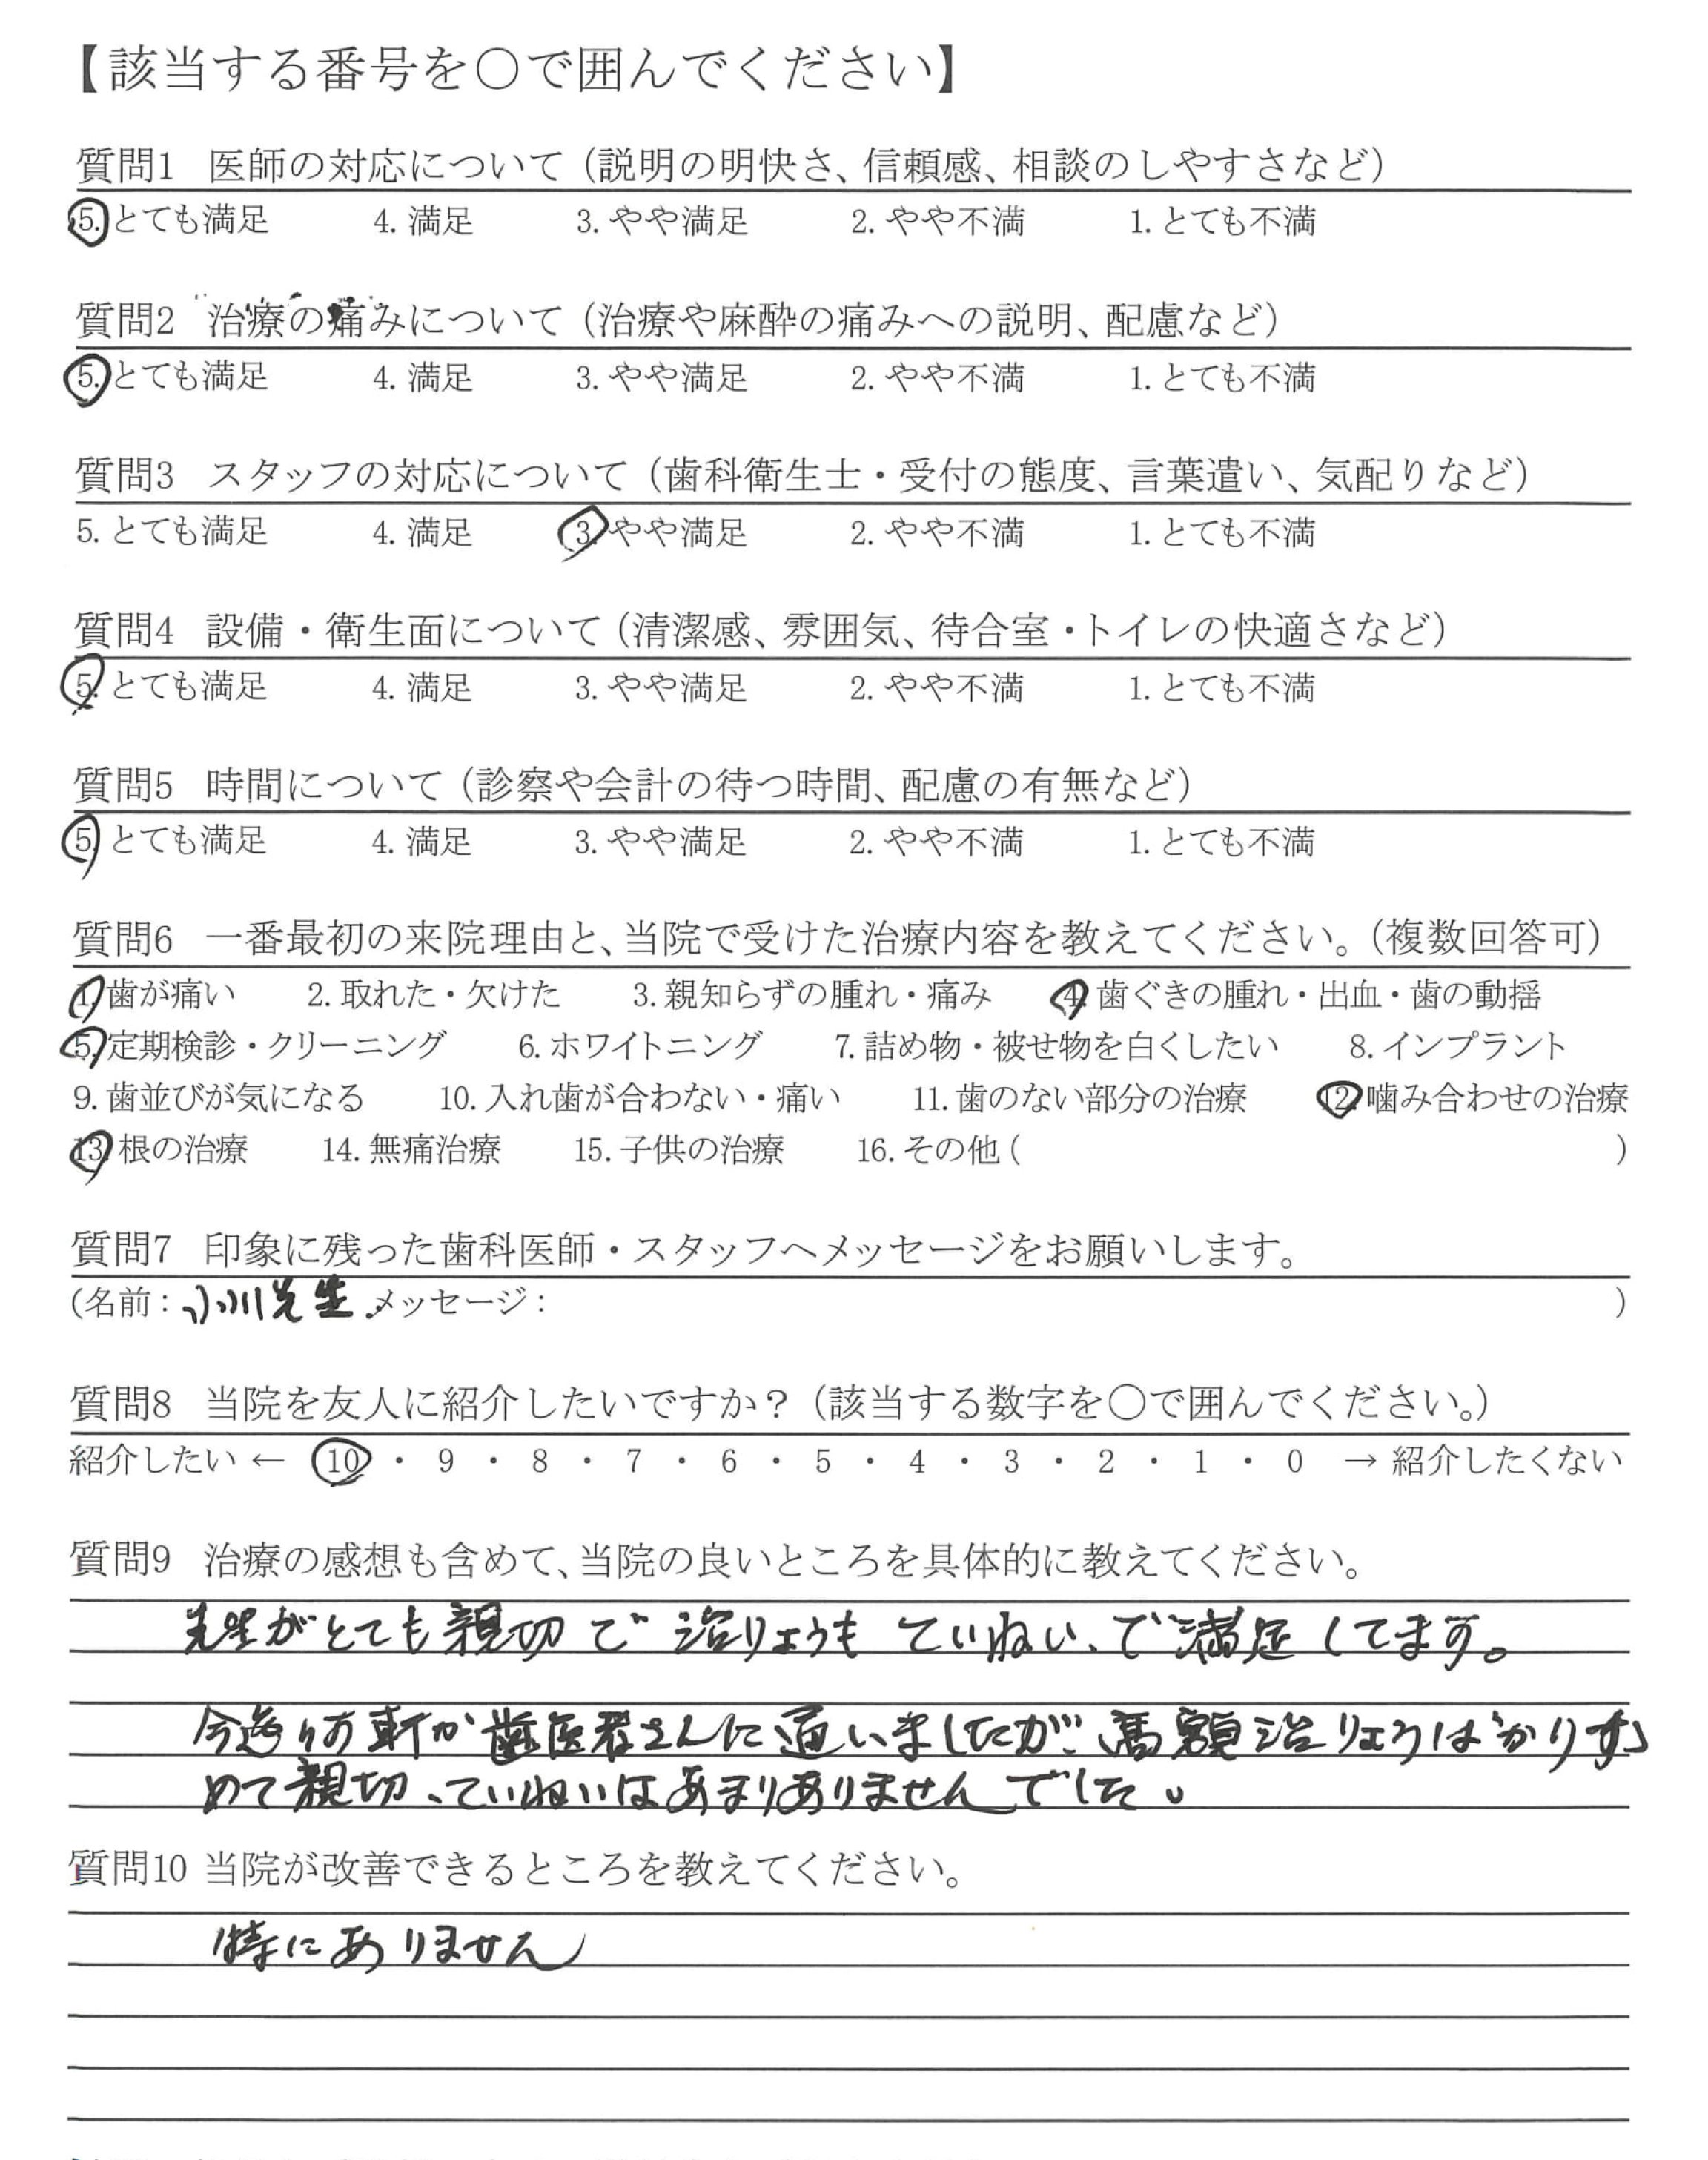 【該当する番号を○で囲んでください】
質問1 医師の対応について（説明の明快さ、信頼感、相談のしやすさなど）
5. とても満足 4. 満足 3. やや満足 2. やや不満 1. とても不満
質問2 治療の痛みについて（治療や麻酔の痛みへの説明、配慮など）
5. とても満足 4. 満足 3. やや満足 2. やや不満 1. とても不満
質問3 スタッフの対応について（歯科衛生士・受付の態度、言葉遣い、気配りなど）
5. とても満足 4. 満足 3. やや満足 2. やや不満 1. とても不満
質問4 設備・衛生面について（清潔感、雰囲気、待合室・トイレの快適さなど）
5. とても満足 4. 満足 3. やや満足 2. やや不満 1. とても不満
質問5 時間について（診察や会計の待つ時間、配慮の有無など）
5. とても満足 4. 満足 3. やや満足 2. やや不満 1. とても不満
質問6 一番最初の来院理由と、当院で受けた治療内容を教えてください。（複数回答可）
1. 歯が痛い 2. 取れた・欠けた 3. 親知らずの腫れ・痛み 4. 歯ぐきの腫れ・出血・歯の動揺
5. 定期検診・クリーニング 6. ホワイトニング 7. 詰め物・被せ物を白くしたい 8. インプラント
9. 歯並びが気になる 10. 入れ歯が合わない・痛い 11. 歯のない部分の治療 12. 噛み合わせの治療
13. 根の治療 14. 無痛治療 15. 子供の治療 16. その他（ ）
質問7 印象に残った歯科医師・スタッフへメッセージをお願いします。
（名前：小川先生 メッセージ： ）
質問8 当院を友人に紹介したいですか？（該当する数字を○で囲んでください。）
紹介したい ← 10 ・ 9 ・ 8 ・ 7 ・ 6 ・ 5 ・ 4 ・ 3 ・ 2 ・ 1 ・ 0 → 紹介したくない
質問9 治療の感想も含めて、当院の良いところを具体的に教えてください。
先生がとても親切で治りょうもていねい、で満足してます。
今迄 軒か歯医者さんに通いましたが、高額治りょうばかりすゝ
めて親切、ていねいはあまりありませんでした。
質問10 当院が改善できるところを教えてください。
特にありません